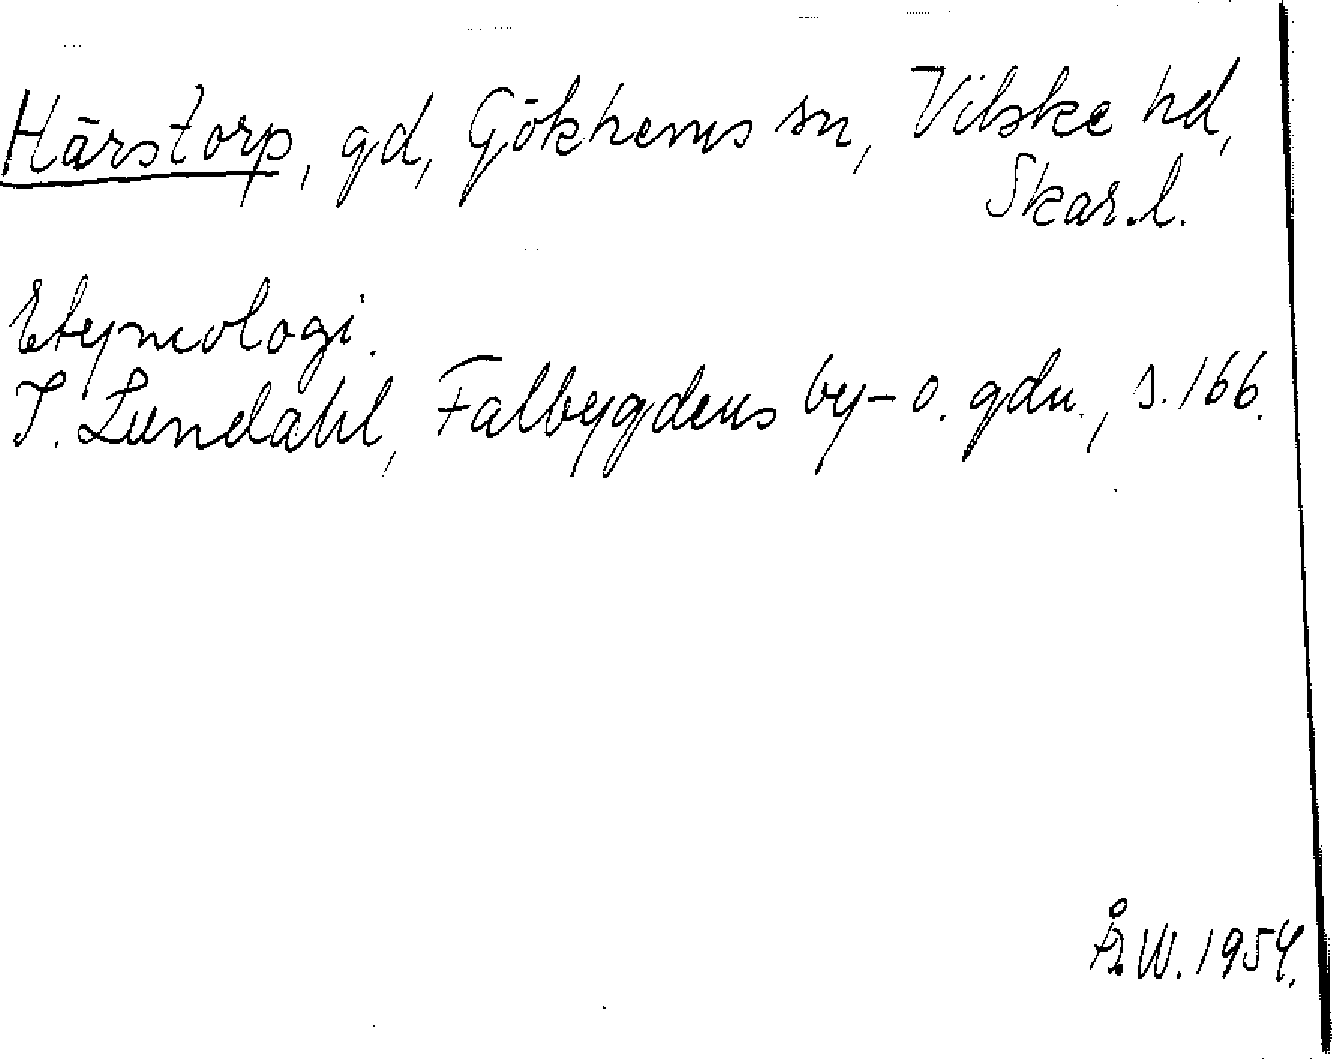 Härstorp, gd, Gökhems sn, Vilske hd,
Skar.l.
Etymologi.
I. Lundahl, Falbygdens by- o. gdn., s. 166.
Å.W. 1954.